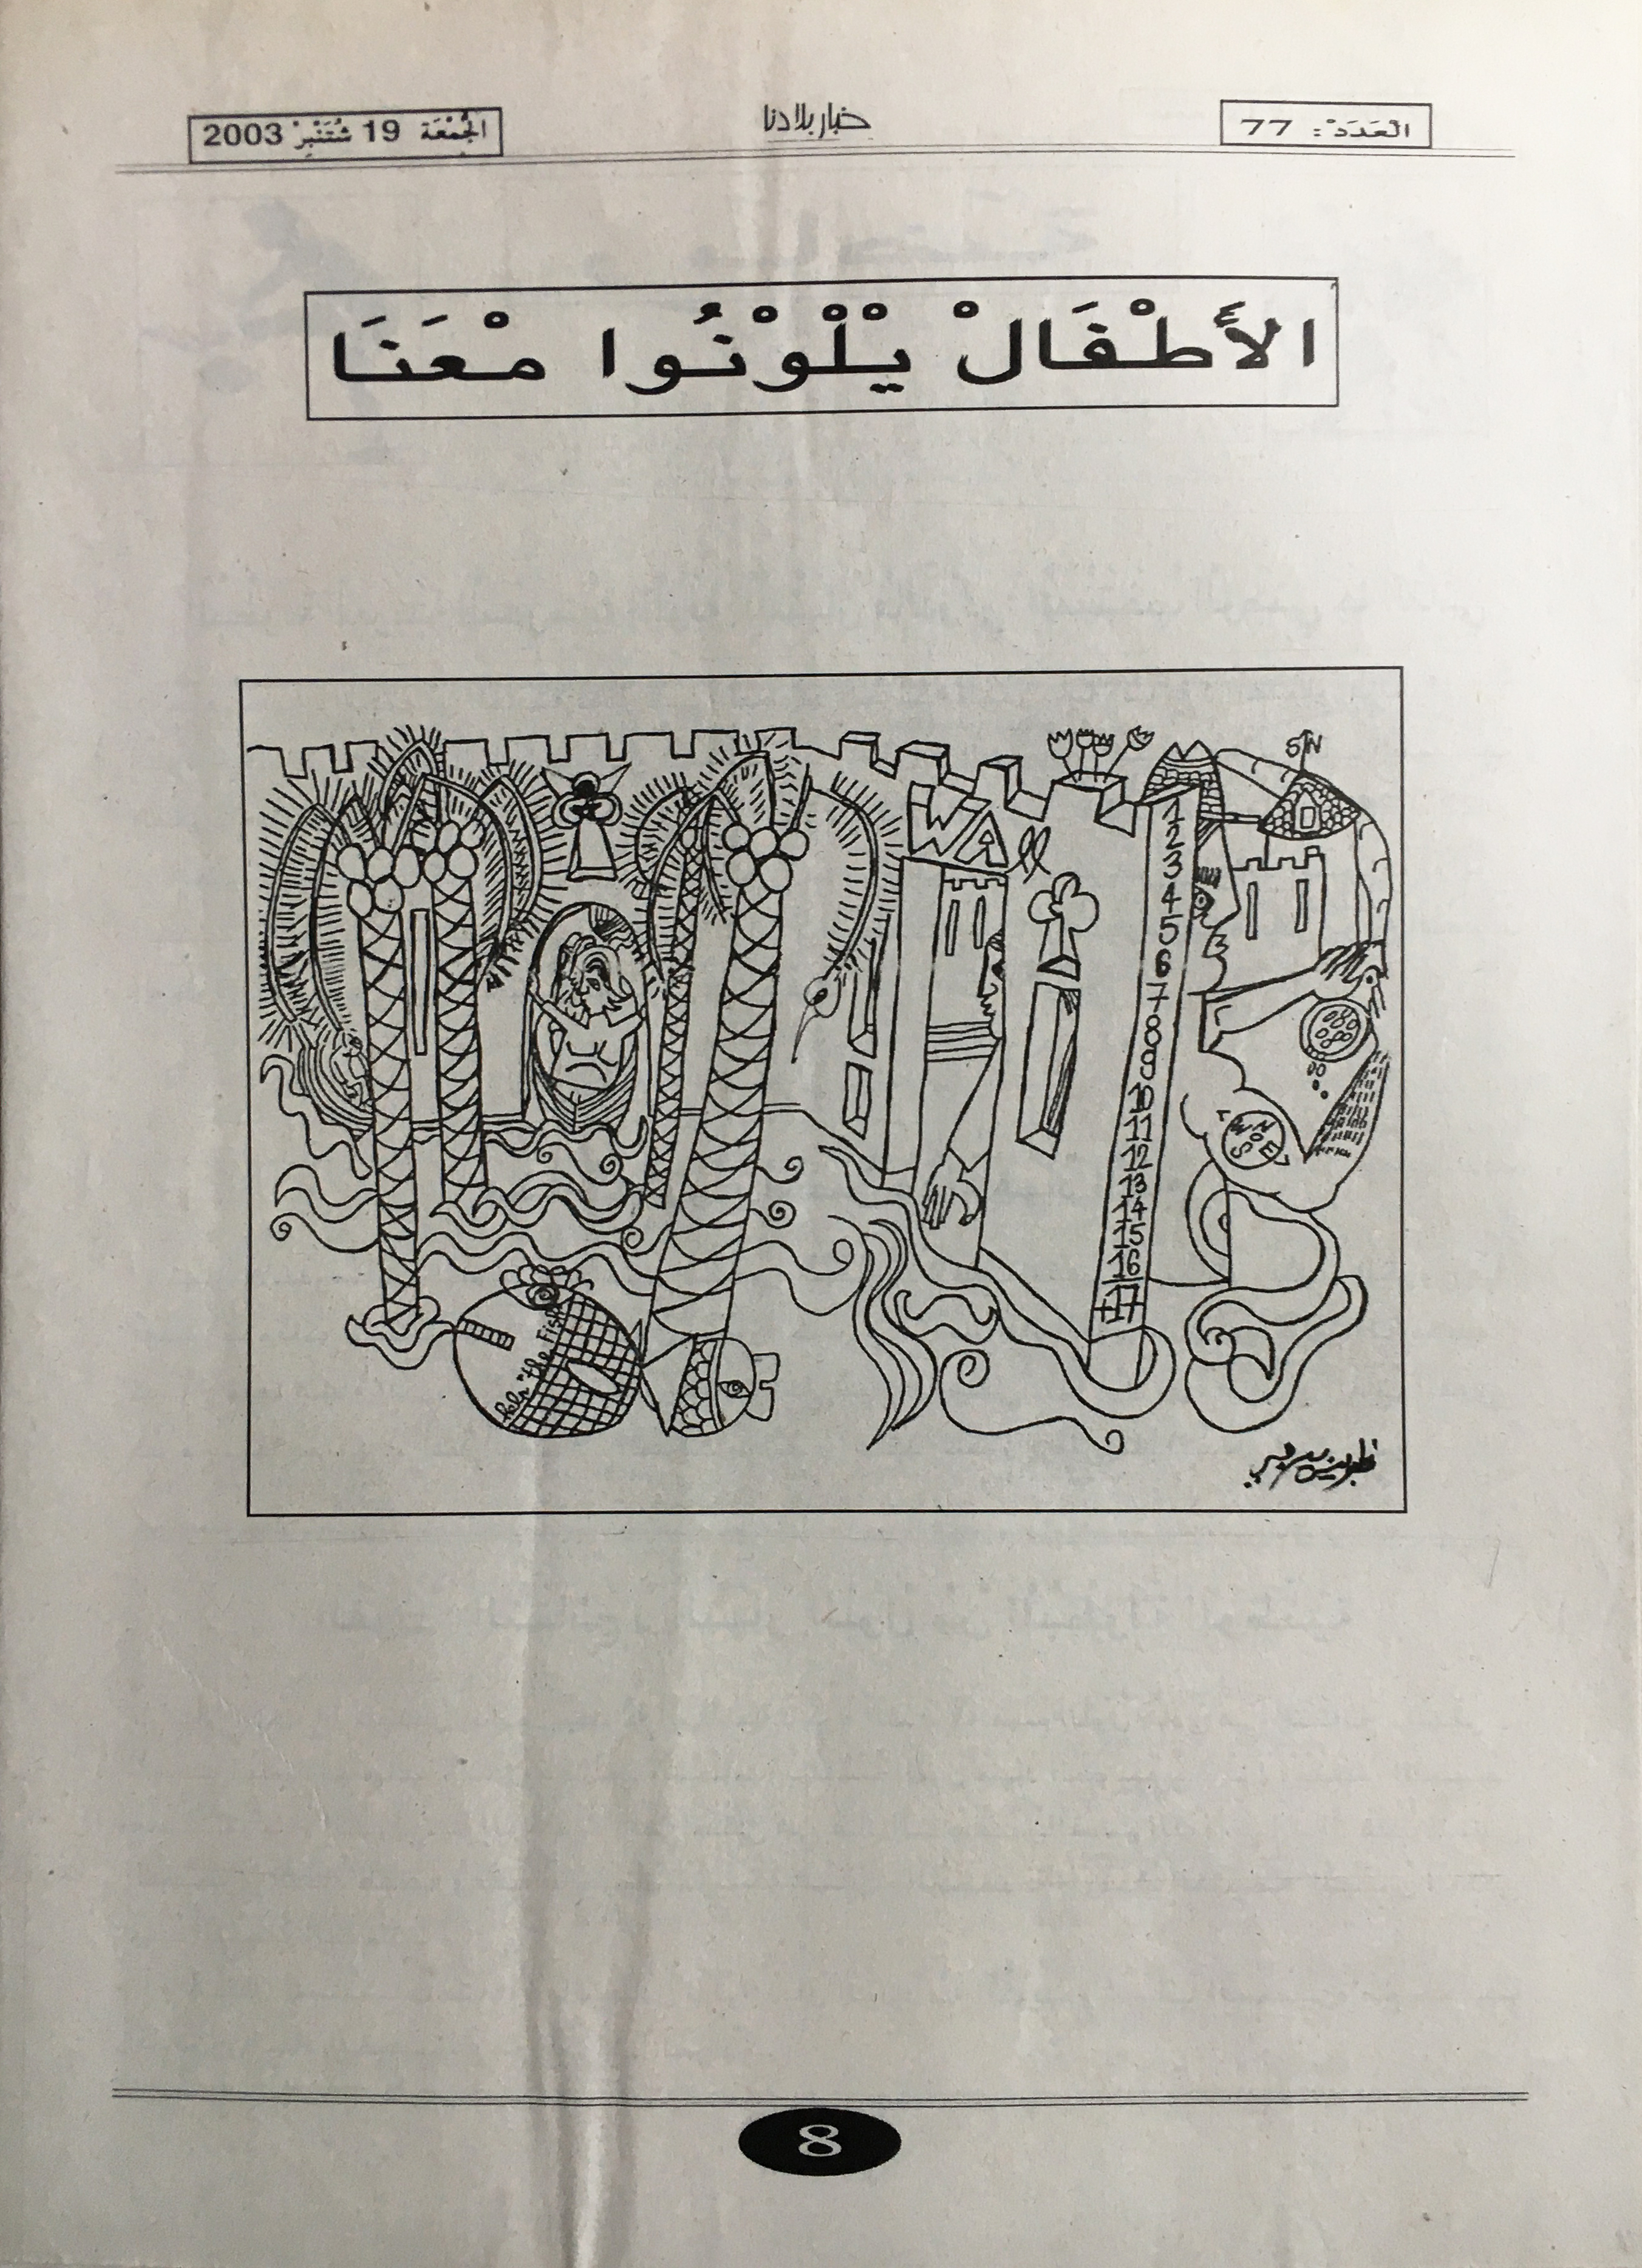 العَدَدْ: 77
خبار بلادنا
الجُمْعَة 19 شُتَنْبِرْ 2003
الأَطْفَالْ يْلْوْنُوا مْعَنَا
S N
WALL
1
2
3
4
5
6
7
8
9
10
11
12
13
14
15
16
+17
N
W O E
S
"the Fish
8